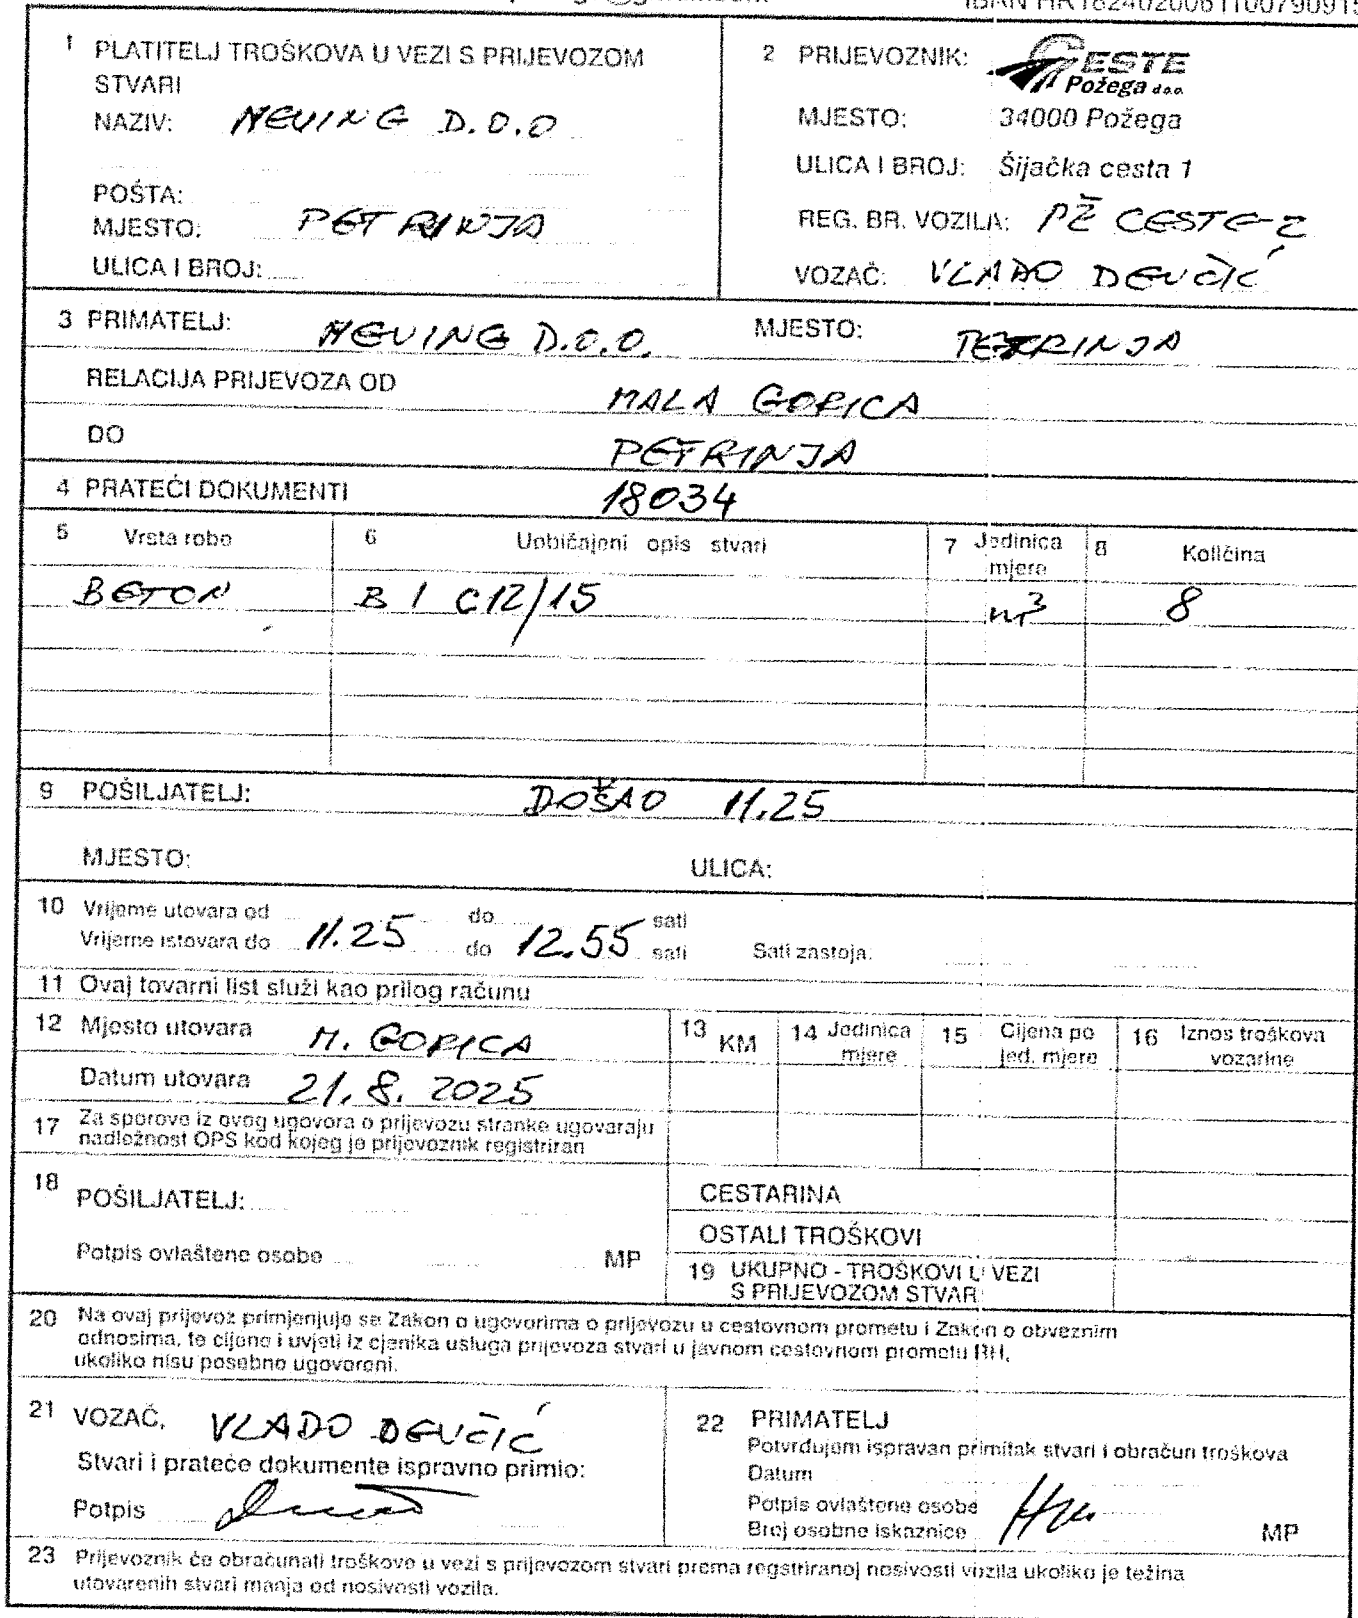 IBAN HR1824020061100790915
1 PLATITELJ TROŠKOVA U VEZI S PRIJEVOZOM
STVARI
NAZIV: HEVING D.O.O
POŠTA:
MJESTO: PETRINJA
ULICA I BROJ:
2 PRIJEVOZNIK: CESTE
Požega d.o.o.
MJESTO: 34000 Požega
ULICA I BROJ: Šijačka cesta 1
REG. BR. VOZILA: PŽ CESTE-2
VOZAČ: VLADO DEVČIĆ
3 PRIMATELJ: HEVING D.O.O. MJESTO: PETRINJA
RELACIJA PRIJEVOZA OD MALA GORICA
DO PETRINJA
4 PRATEĆI DOKUMENTI 18034
5 Vrsta robe 6 Uobičajeni opis stvari 7 Jedinica mjere 8 Količina
BETON B 1 C12/15 m3 8
9 POŠILJATELJ: DOŠAO 11.25
MJESTO: ULICA:
10 Vrijeme utovara od do sati
Vrijeme istovara do 11.25 do 12.55 sati Sati zastoja:
11 Ovaj tovarni list služi kao prilog računu
12 Mjesto utovara M. GORICA
Datum utovara 21.8. 2025
13 KM 14 Jedinica mjere 15 Cijena po jed. mjere 16 Iznos troškova vozarine
17 Za sporove iz ovog ugovora o prijevozu stranke ugovaraju
nadležnost OPS kod kojeg je prijevoznik registriran
18 POŠILJATELJ:
Potpis ovlaštene osobe MP
CESTARINA
OSTALI TROŠKOVI
19 UKUPNO - TROŠKOVI U VEZI
S PRIJEVOZOM STVARI
20 Na ovaj prijevoz primjenjuje se Zakon o ugovorima o prijevozu u cestovnom prometu i Zakon o obveznim
odnosima, te cijene i uvjeti iz cjenika usluga prijevoza stvari u javnom cestovnom prometu RH,
ukoliko nisu posebno ugovoreni.
21 VOZAČ, VLADO DEVČIĆ
Stvari i prateće dokumente ispravno primio:
Potpis
22 PRIMATELJ
Potvrđujem ispravan primitak stvari i obračun troškova
Datum
Potpis ovlaštene osobe
Broj osobne iskaznice MP
23 Prijevoznik će obračunati troškove u vezi s prijevozom stvari prema regstriranoj nosivosti vozila ukoliko je težina
utovarenih stvari manja od nosivosti vozila.